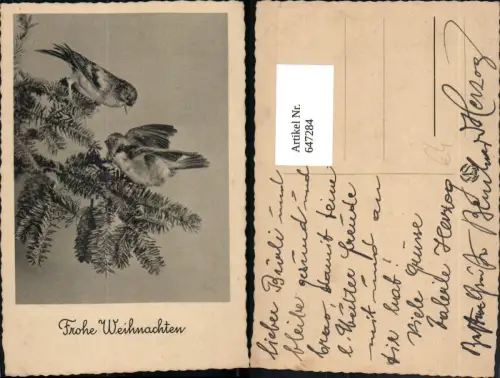 Frohe Weihnachten
Artikel Nr.
647284
lieber und
bleibe gesund und
brav, damit deine
l. Mutter Freude
mit und an
dir hat!
Viele Grüsse
Herzog
Herzog